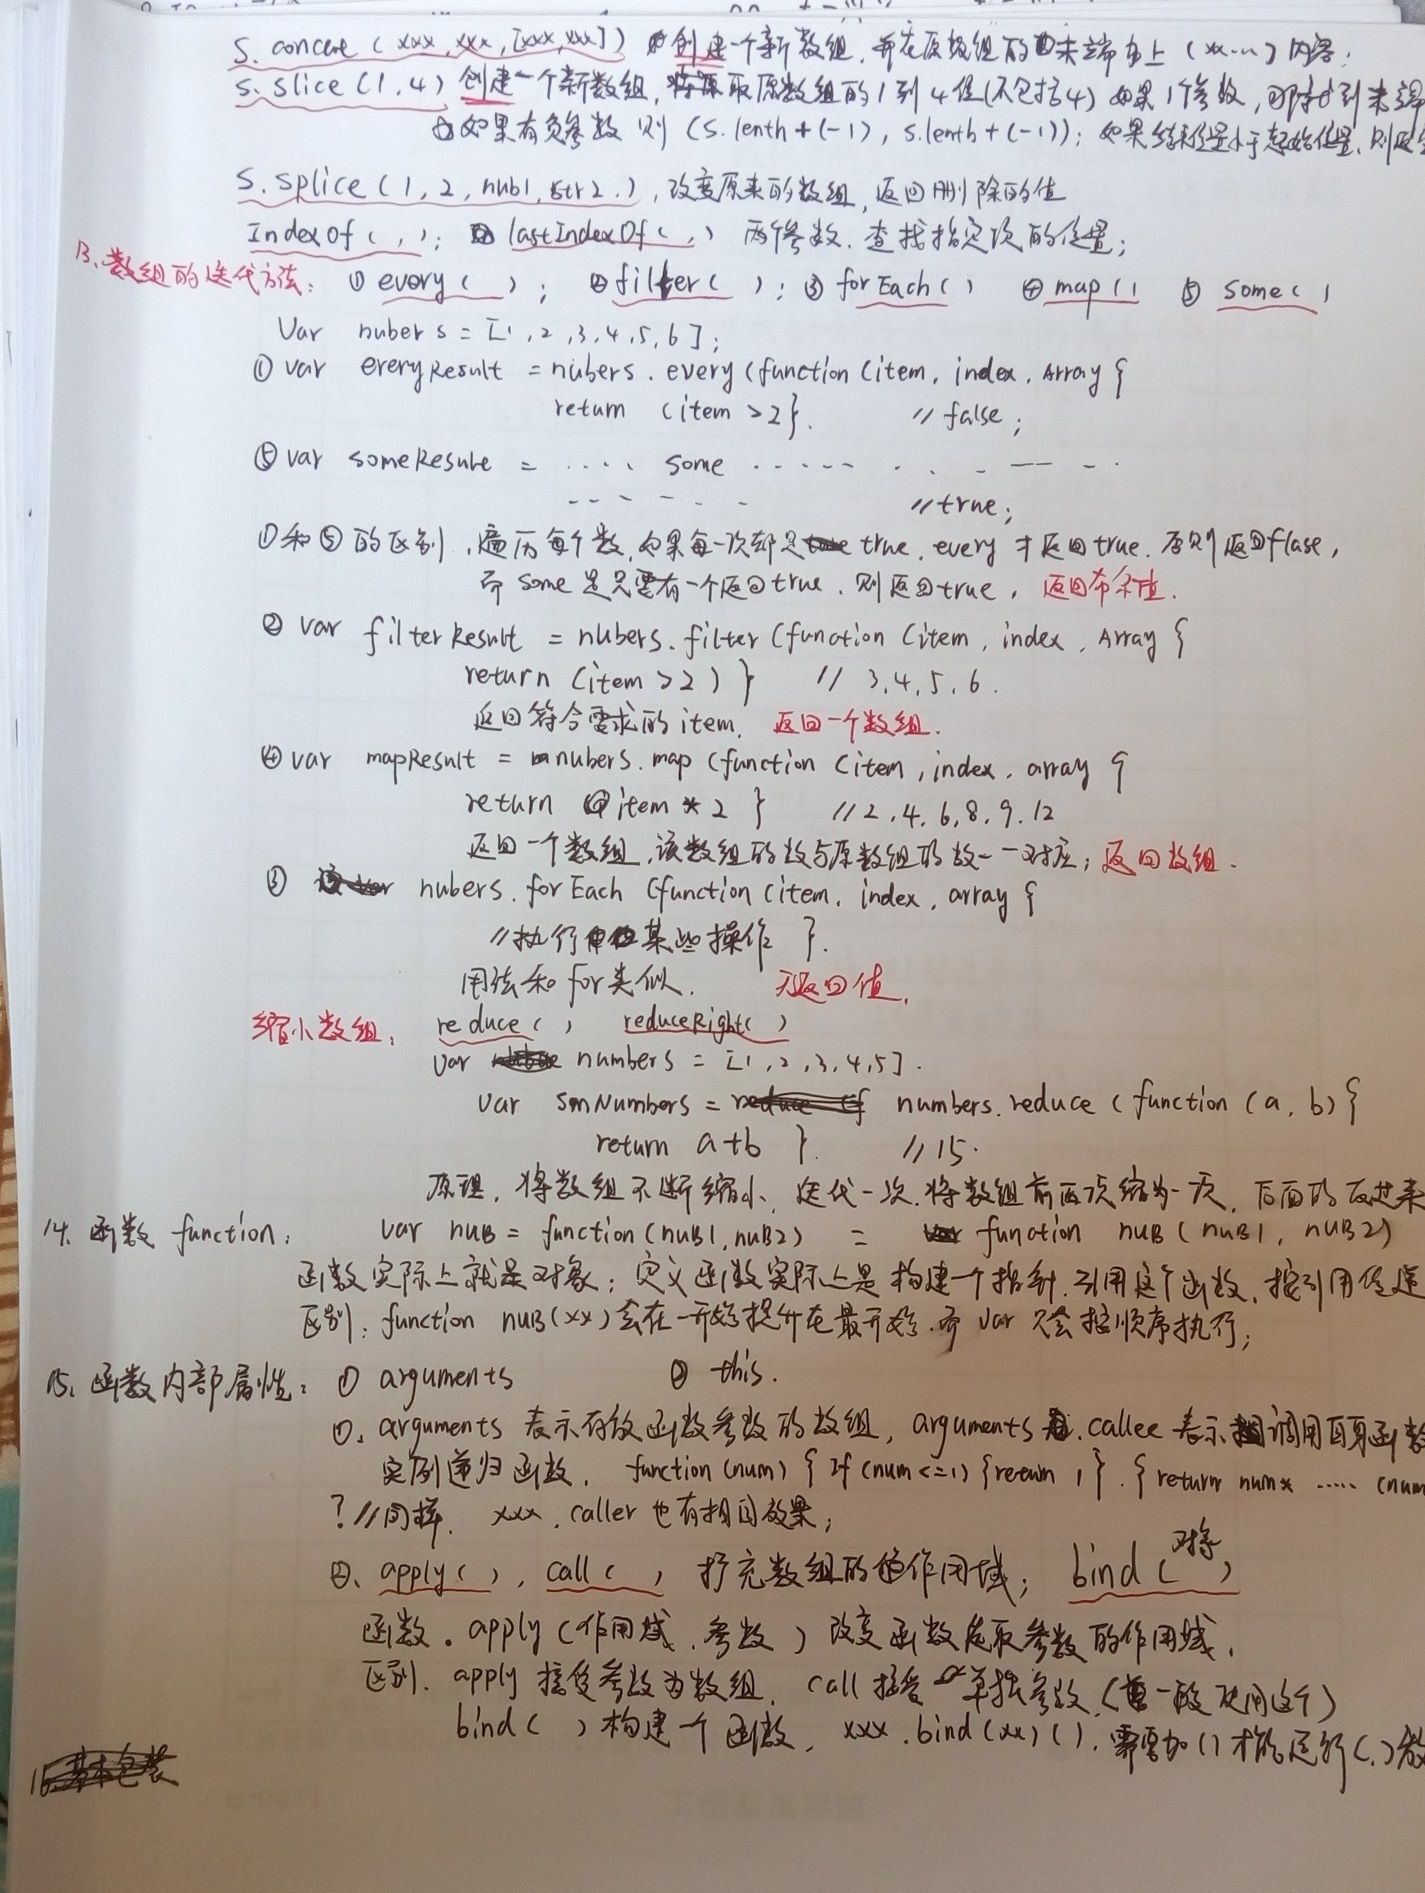 S. concat ( xxx, xxx, [xxx, xxx] ) 创建一个新数组, 并在原数组的末端加上 (xx...) 内容;
S. Slice (1, 4) 创建一个新数组, 取原数组的 1 到 4 值(不包括4) 如果 1个参数, 则到末
如果有负参数 则 (S. lenth + (-1), S.lenth + (-1)); 如果结束位置小于起始位置, 则返
S. Splice ( 1, 2, nub1, str2.), 改变原来的数组, 返回删除的值
Index Of ( , ); lastIndexOf ( , ) 两个参数. 查找指定项的位置;
13、数组的迭代方法: ① every ( ) ; ② filter ( ) ; ③ for Each ( ) ④ map ( ) ⑤ some ( )
Var nubers = [1, 2, 3, 4, 5, 6];
① var ereryResult = nubers. every (function (item, index, Array {
return (item >2}. // false;
⑤ var someResult = .... some ..... . . - -- - .
- - - - - - //true;
①和⑤的区别, 遍历每个数, 如果每一次都是 true, every 才返回true. 否则返回flase,
而 some 是只要有一个返回true. 则返回true, 返回布尔值.
② var filterResult = nubers. filter (function (item, index, Array {
return (item >2) } // 3, 4, 5, 6.
返回符合要求的item. 返回一个数组.
④ var mapResult = nubers. map (function (item, index, array {
return item * 2 } // 2, 4, 6, 8, 9, 12
返回一个数组, 该数组的数与原数组的数一一对应; 返回数组.
③ nubers. for Each (function (item, index, array {
//执行某些操作 }.
用法和for类似. 无返回值.
缩小数组: reduce ( ) reduceRight( )
var numbers = [1, 2, 3, 4, 5].
Var smNumbers = numbers. reduce ( function (a, b) {
return a+b }. //15.
原理, 将数组不断缩小, 迭代一次, 将数组前两项缩为一次, 后面的反过来
14. 函数 function: var nuB = function (nuB1, nuB2) = function nuB (nuB1, nuB2)
函数实际上就是对象; 定义函数实际上是构建一个指针, 引用这个函数, 按引用传递
区别: function nuB(xx) 会在一开始提升在最开始. 而 var 只会按顺序执行;
15. 函数内部属性: ① arguments ② this.
①. arguments 表示存放函数参数的数组, arguments . callee 表示调用自身函数
实例递归函数, function (num) { if (num <=1) {return 1} . { return num* ..... (num
? //同样. xxx . caller 也有相同效果;
②. apply ( ) , call ( ) 扩充数组的作用域; bind (对象)
函数. apply (作用域, 参数) 改变函数参数的作用域.
区别. apply 接受参数为数组, call 接受单独参数, (一般使用这个)
bind ( ) 构建一个函数, xxx . bind (xx) ( ). 需要加 ( ) 才能运行 ( )